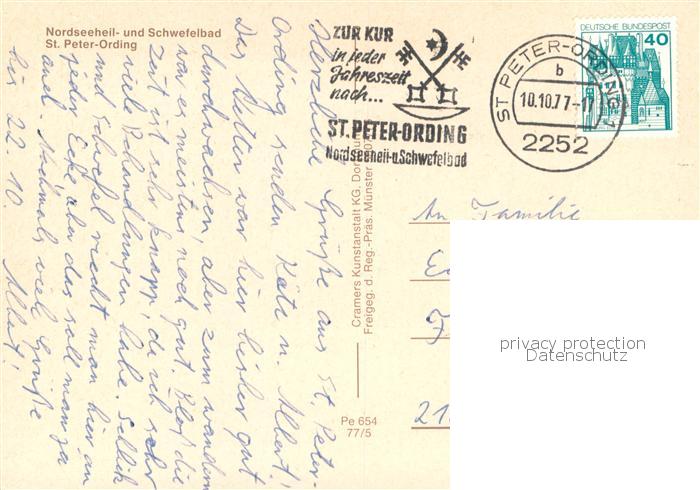 Nordseeheil- und Schwefelbad
St. Peter-Ording
ZUR KUR
in jeder
Jahreszeit
nach...
ST. PETER-ORDING
Nordseeheil-u.Schwefelbad
ST. PETER-ORDING 1
b
10.10.77-17
2252
DEUTSCHE BUNDESPOST
40
Herzliche Grüße aus St. Peter-
Ording senden Käte u. Albert!
Das Wetter war hier bisher gut
durchwachsen, aber zum wandern
war's meistens noch gut. Bloß die
Zeit ist sehr knapp, da ich sehr
viele Behandlungen habe. Schlick
und Schwefel riecht man hier an
jeder Ecke, aber das soll man ja
auch. Nochmals viele Grüße
bis 22.10. Albert!
Cramers Kunstanstalt KG, Dortmund
Freigeg. d. Reg.-Präs. Münster
Pe 654
77/5
An Familie
21
privacy protection
Datenschutz